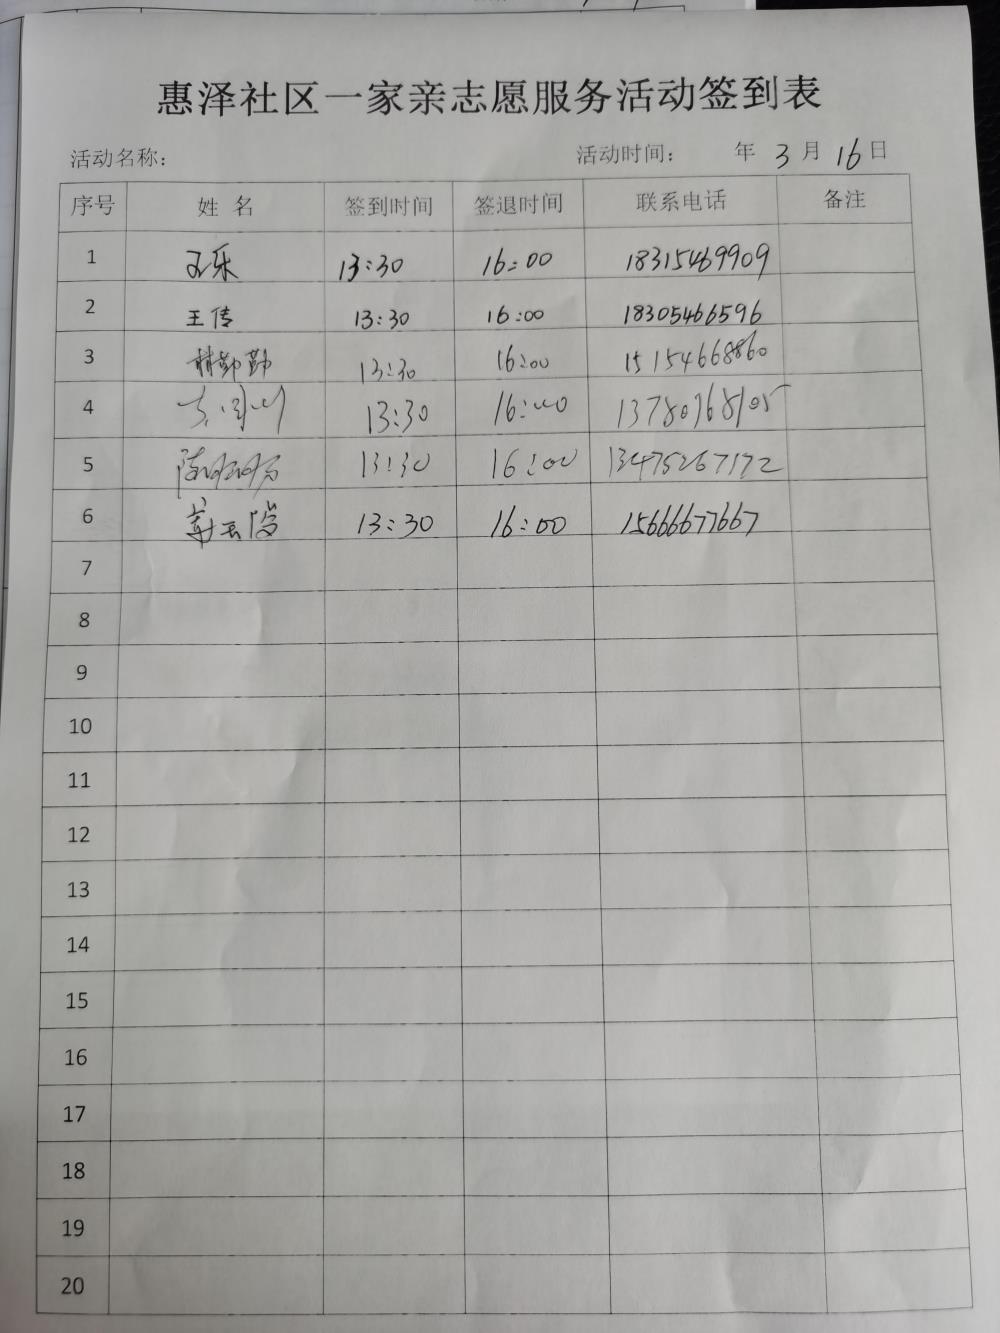 惠泽社区一家亲志愿服务活动签到表
活动名称： 活动时间： 年 3 月 16 日
序号 姓 名 签到时间 签退时间 联系电话 备注
1 王乐 13:30 16:00 18315469909
2 王传 13:30 16:00 18305466596
3 林勤勤 13:30 16:00 15154668860
4 13:30 16:00
5 13:30 16:00 13475267172
6 13:30 16:00 15666677667
7
8
9
10
11
12
13
14
15
16
17
18
19
20